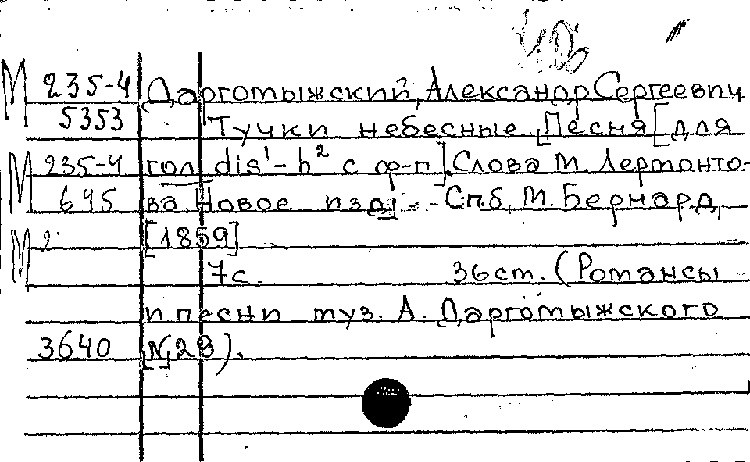 М 235-4 Даргомыжский, Александр Сергеевич
5353 Тучки небесные. Песня [для
М 235-4 гол. dis¹-h² с ф-п]. Слова М. Лермонто-
645 ва. Новое изд. - Спб., М. Бернард,
М 2 [1859]
7с. 36 ст. (Романсы
и песни муз. А. Даргомыжского
3640 [№28).